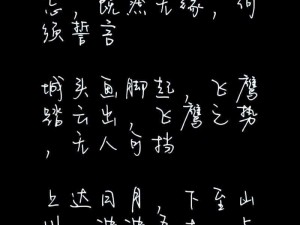 忘，既然无缘，何
须誓言
城头画脚起，飞鹰
踏云出，飞鹰之势
，无人可挡
上达日月，下至山